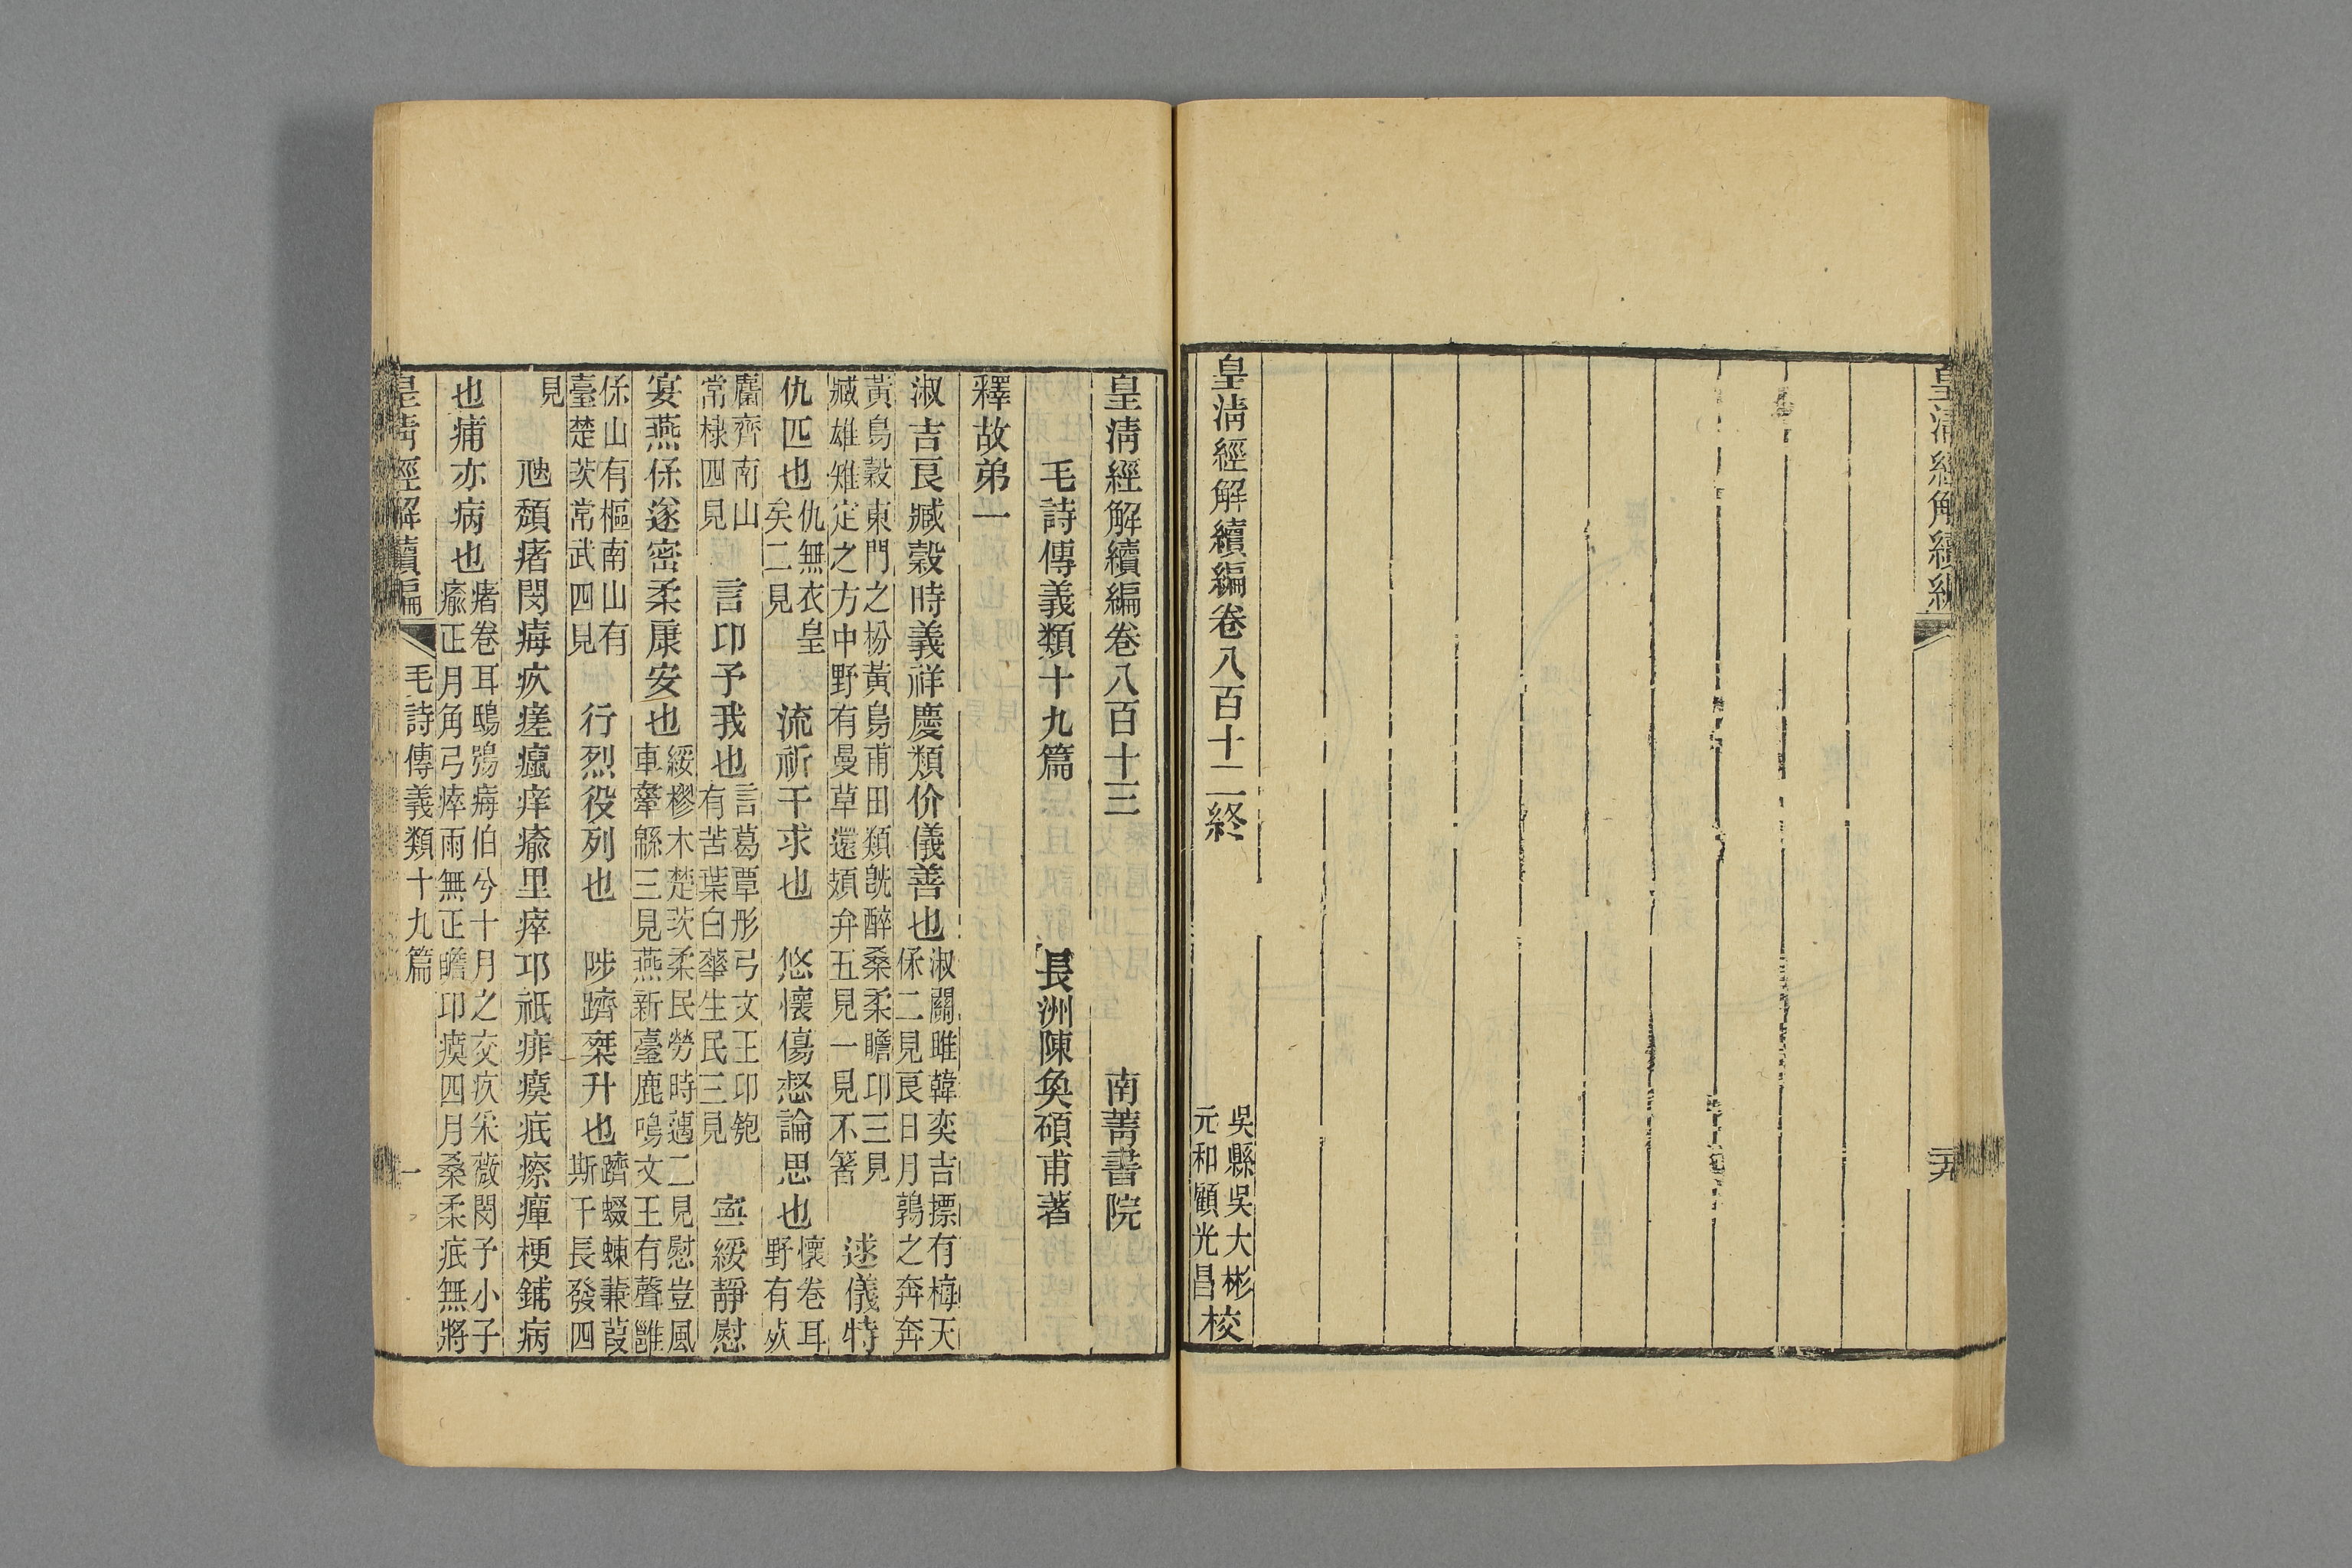 皇清經解續編
皇清經解續編卷八百十二終
吳縣吳大彬
元和顧光昌
校
皇清經解續編卷八百十三
南菁書院
毛詩傳義類十九篇
長洲陳奐碩甫著
釋故弟一
淑吉良臧穀時義祥慶類价儀善也
淑關雎韓奕吉摽有梅天
保二見良日月鶉之奔奔
黃鳥穀東門之枌黃鳥甫田類旣醉桑柔瞻卬三見
臧雄雉定之方中野有蔓草還頍弁五見一見不箸
逑儀特
仇匹也
仇無衣皇
矣二見
流祈干求也
悠懷傷惄論思也
懷卷耳
野有死
麕齊南山
常棣四見
言卬予我也
言葛覃彤弓文王卬匏
有苦葉白華生民三見
寍綏靜慰
宴燕保遂密柔康安也
綏樛木楚茨柔民勞時邁二見慰豈風
車舝緜三見燕新臺鹿鳴文王有聲雝
保山有樞南山有
臺楚茨常武四見
行烈役列也
陟躋桀升也
躋蝃蝀蒹葭
斯干長發四
見
虺頹瘏閔痗疚瘥癙痒瘉里瘁邛祇痱瘼疧瘵癉梗鋪病
也痡亦病也
瘏卷耳鴟鴞痗伯兮十月之交疚采薇閔予小子
瘉正月角弓瘁雨無正瞻卬瘼四月桑柔疧無將
皇清經解續編
毛詩傳義類十九篇
一